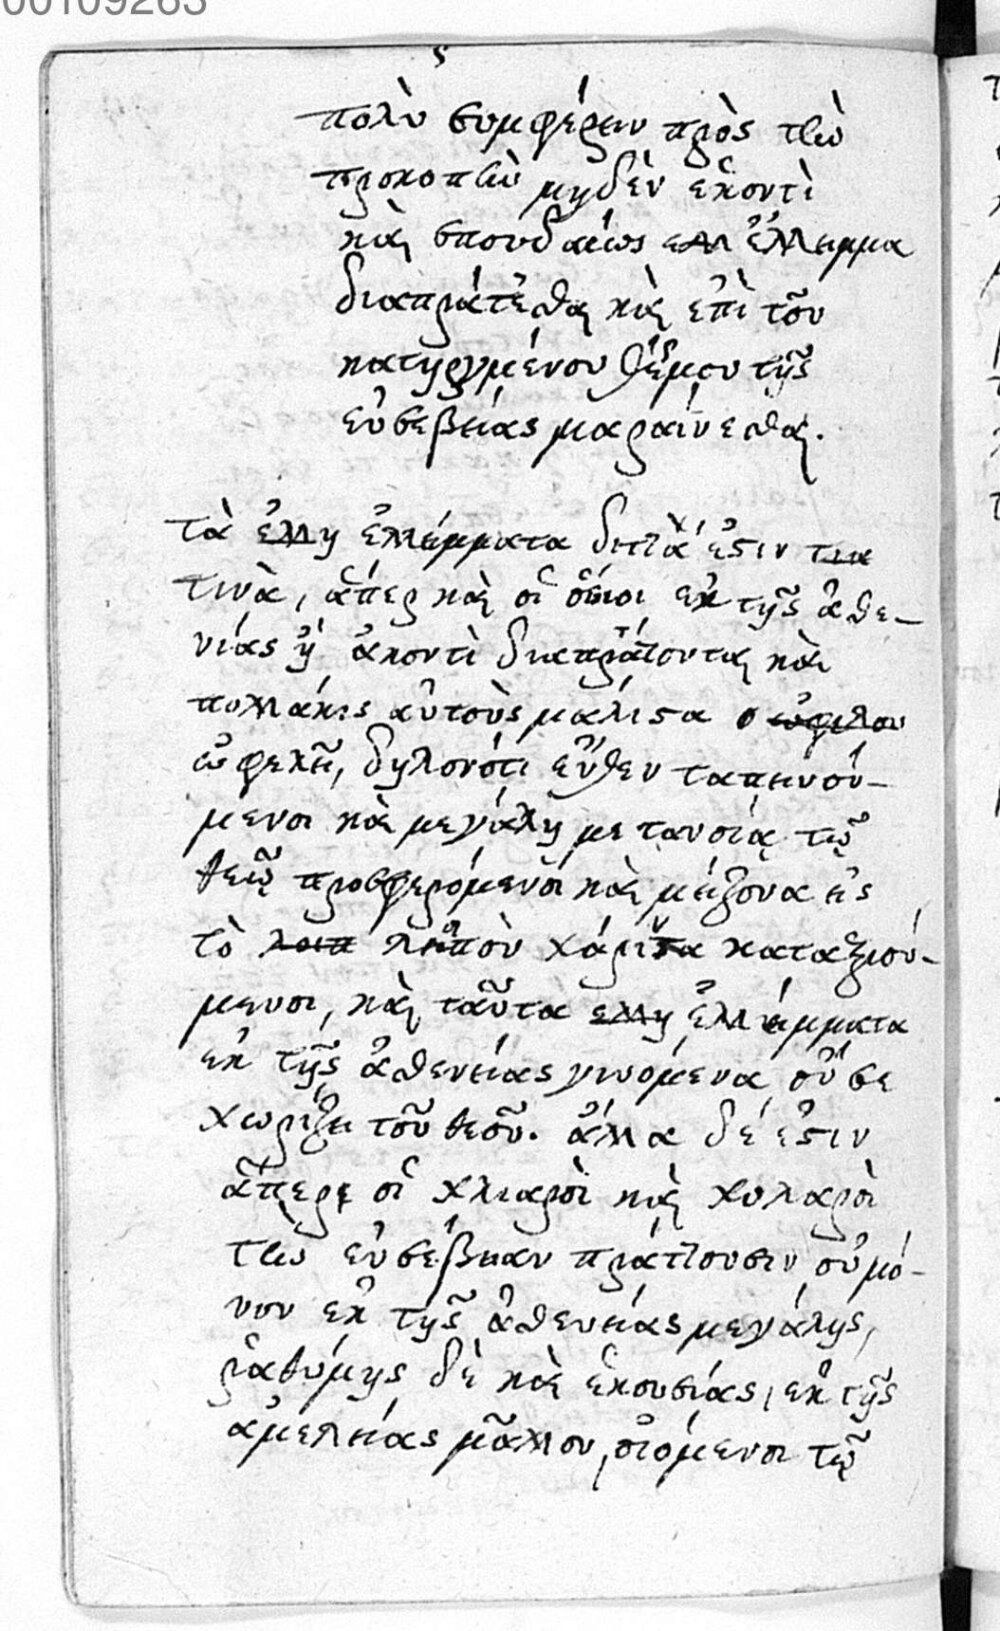 00109263
ς
πολὺ συμφέρειν πρὸς τὴν
προκοπὴν μηδὲν ἑκοντὶ
καὶ σπουδαίως ἔλλειμμα
διαπράτεσθαι καὶ ἐπὶ τοῦ
κατηργμένου τῆς
εὐσεβείας μαραίνεσθαι.
τὰ ἐλλη ἐλλείμματα διττὰ ἐστιν τινα
τινὰ, ἅπερ καὶ οἱ ὅσιοι ἐκ τῆς ἀσθε-
νίας ἢ ἀκοντὶ διαπράττονται καὶ
πολλάκις αὐτοὺς μάλιστα ὁ ὠφελου
ὠφελεῖ, δηλονότι ἔνθεν ταπεινού-
μενοι καὶ μεγάλη μετανοίᾳ τῷ
θεῷ προσφερόμενοι καὶ μείζονα εἰς
τὸ λοιπ λειπὸν χάριτα καταξιού-
μενοι, καὶ ταῦτα ελλη ἐλλείμματα
ἐκ τῆς ἀσθενείας γινόμενα οὔ σε
χωρίζει τοῦ θεοῦ. ἄλλα δέ ἐστιν
ἅπερ οἱ χλιαροὶ καὶ χυλαροὶ
τὴν εὐσέβειαν πράττουσιν οὐ μό-
νον ἐκ τῆς ἀσθενείας μεγάλης,
ῥαθύμης δὲ καὶ ἑκουσίας, ἐκ τῆς
ἀμελείας μᾶλλον, οἰόμενοι τῷ